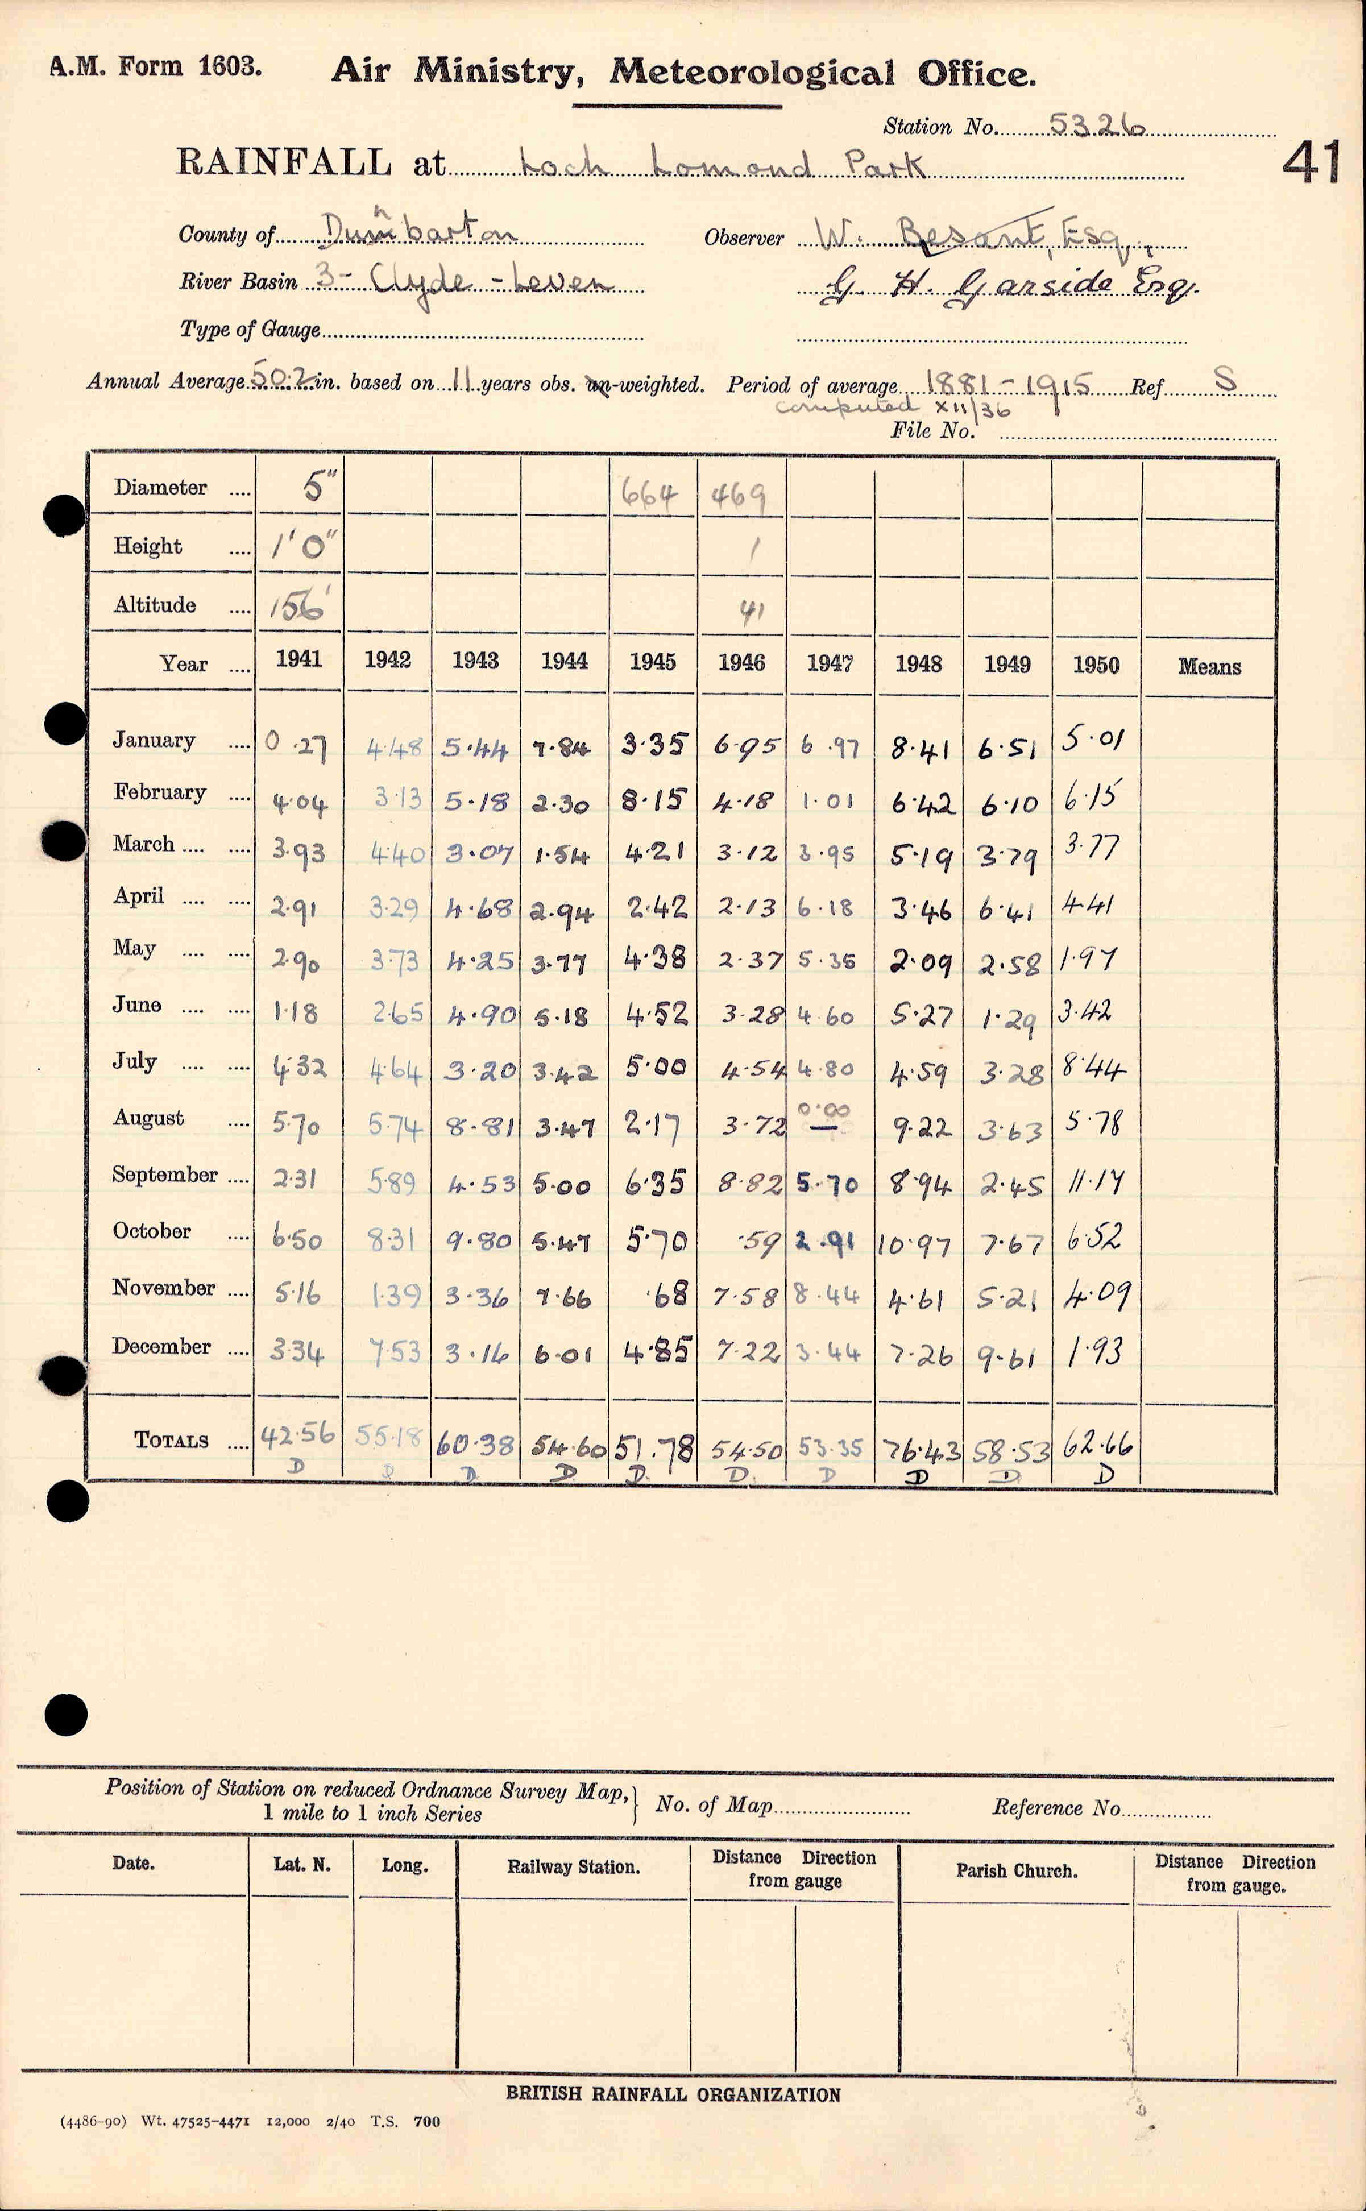 A.M. Form 1603. Air Ministry, Meteorological Office.
Station No. 5326
41
RAINFALL at Loch Lomond Park
County of Dumbarton Observer W. Besant, Esq.,
n
River Basin 3 - Clyde - Leven G. H. Garside Esq.
Type of Gauge
Annual Average 50.2 in. based on 11 years obs. un-weighted. Period of average 1881 - 1915 Ref S
computed XII/36
File No.
Diameter 5" 664 469
Height 1' 0" 1
Altitude 156' 41
Year 1941 1942 1943 1944 1945 1946 1947 1948 1949 1950 Means
January 0.27 4.48 5.44 7.84 3.35 6.95 6.97 8.41 6.51 5.01
February 4.04 3.13 5.18 2.30 8.15 4.18 1.01 6.42 6.10 6.15
March 3.93 4.40 3.07 1.54 4.21 3.12 3.95 5.19 3.79 3.77
April 2.91 3.29 4.68 2.94 2.42 2.13 6.18 3.46 6.41 4.41
May 2.90 3.73 4.25 3.77 4.38 2.37 5.35 2.09 2.58 1.97
June 1.18 2.65 4.90 5.18 4.52 3.28 4.60 5.27 1.29 3.42
July 4.32 4.64 3.20 3.42 5.00 4.54 4.80 4.59 3.28 8.44
0.00
August 5.70 5.74 8.81 3.47 2.17 3.72 — 9.22 3.63 5.78
September 2.31 5.89 4.53 5.00 6.35 8.82 5.70 8.94 2.45 11.17
October 6.50 8.31 9.80 5.47 5.70 .59 2.91 10.97 7.67 6.52
November 5.16 1.39 3.36 7.66 .68 7.58 8.44 4.61 5.21 4.09
December 3.34 7.53 3.16 6.01 4.85 7.22 3.44 7.26 9.61 1.93
TOTALS 42.56 55.18 60.38 54.60 51.78 54.50 53.35 76.43 58.53 62.66
D D D D D D D D D D
Position of Station on reduced Ordnance Survey Map, } No. of Map Reference No
1 mile to 1 inch Series
Date. Lat. N. Long. Railway Station. Distance Direction from gauge Parish Church. Distance Direction from gauge.
BRITISH RAINFALL ORGANIZATION
(4486-90) Wt. 47525-4471 12,000 2/40 T.S. 700